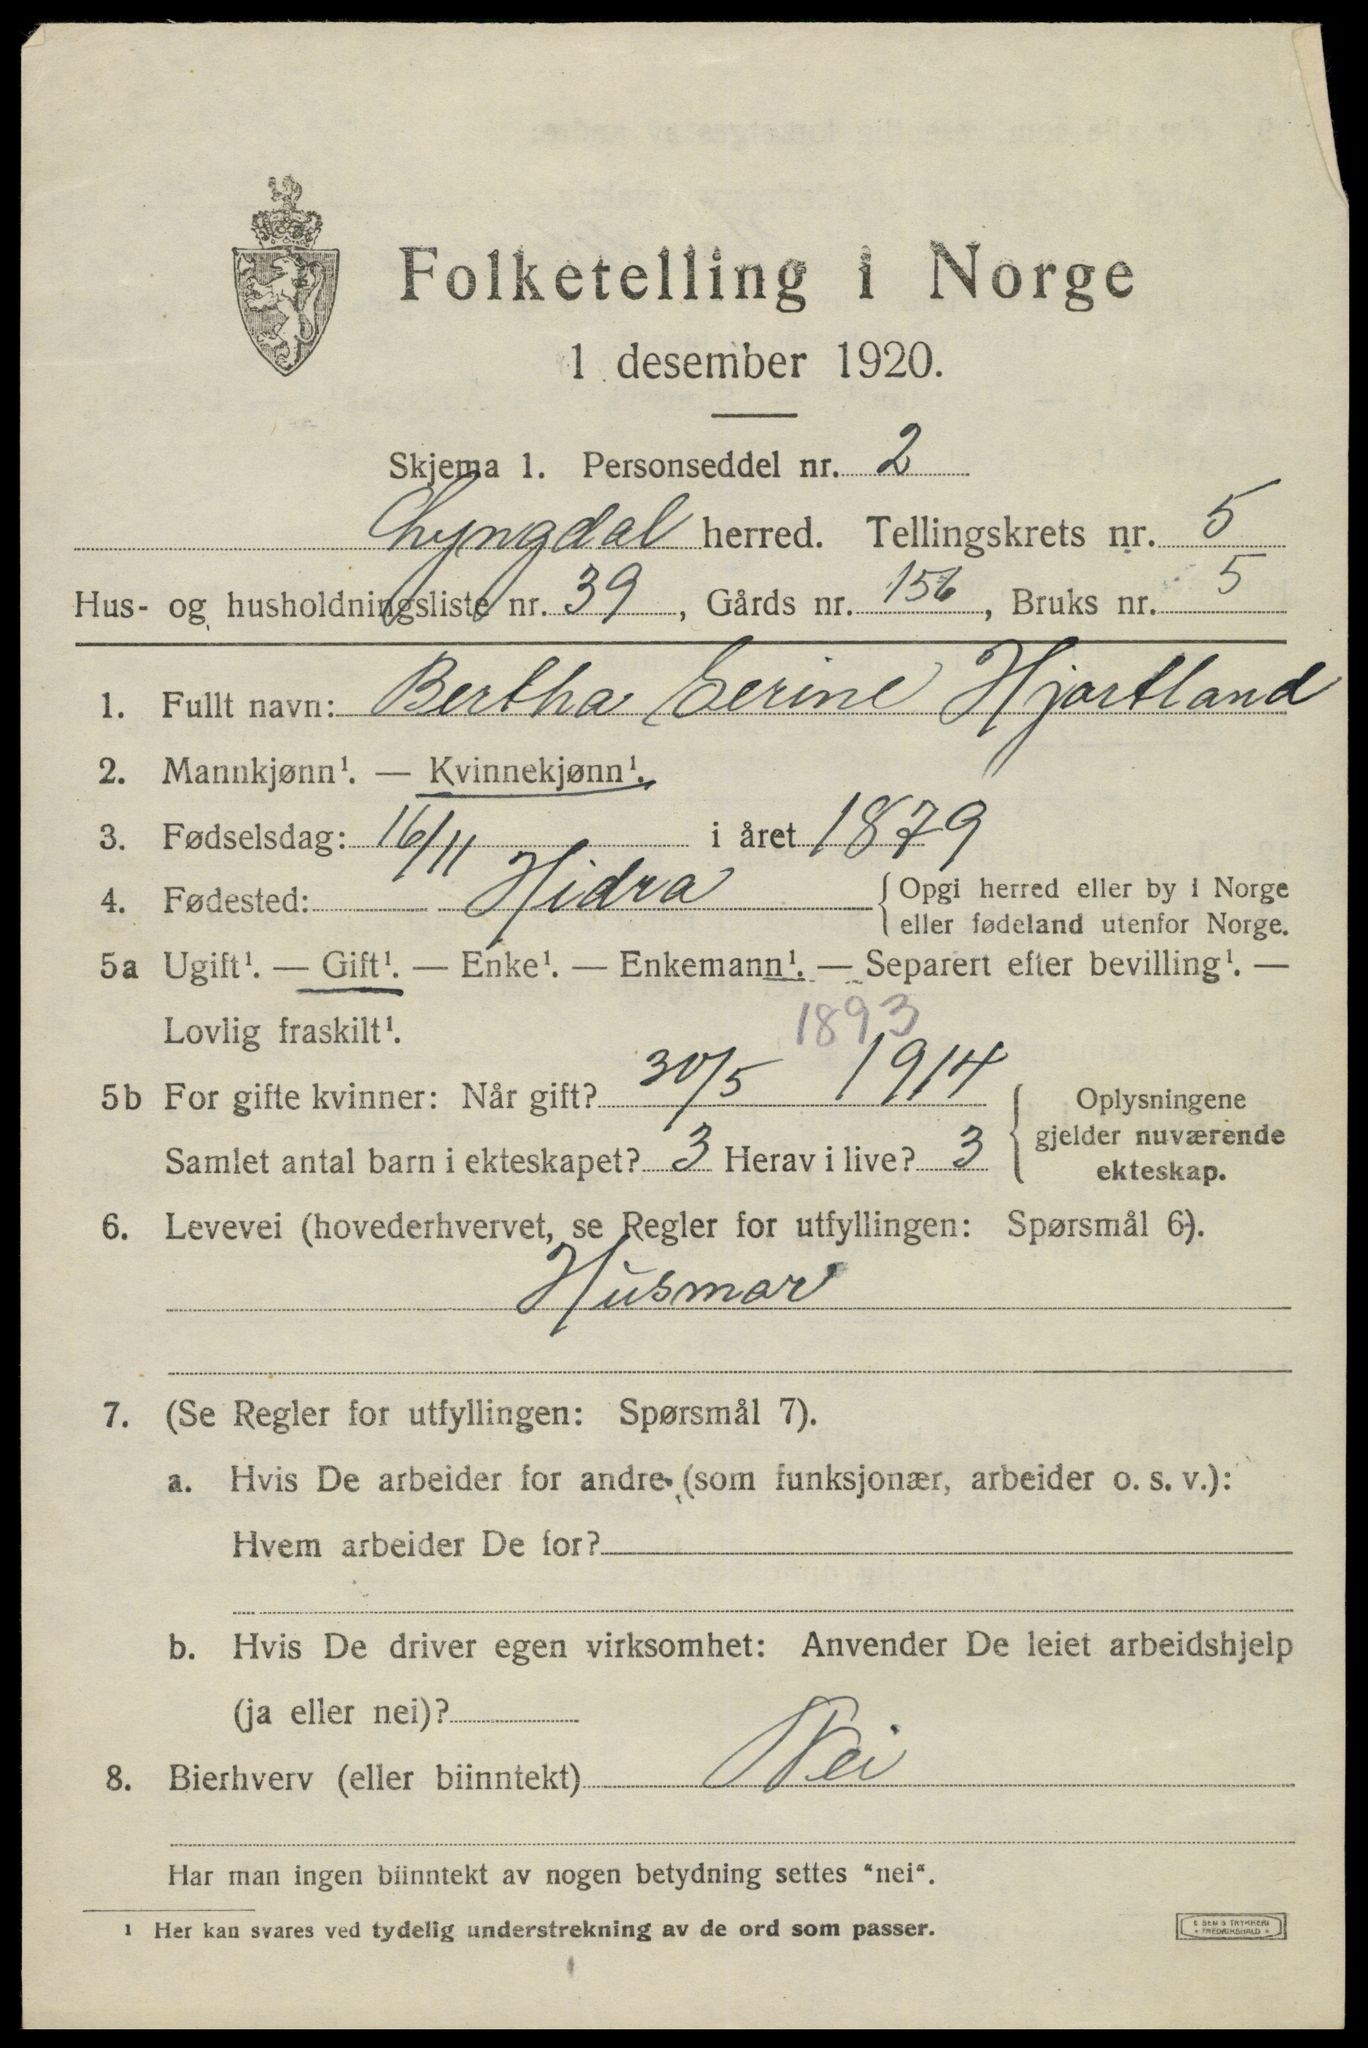 Folketelling i Norge
1 desember 1920.
Skjema 1. Personseddel nr. 2
Lyngdal herred. Tellingskrets nr. 5
Hus- og husholdningsliste nr. 39, Gårds nr. 156, Bruks nr. 5
1. Fullt navn: Bertha Serine Hjortland
2. Mannkjønn¹. — Kvinnekjønn¹.
3. Fødselsdag: 16/11 i året 1879
4. Fødested: Hidra { Opgi herred eller by i Norge
eller fødeland utenfor Norge.
5a Ugift¹. — Gift¹. — Enke¹. — Enkemann¹. — Separert efter bevilling¹. —
Lovlig fraskilt¹.
1893
5b For gifte kvinner: Når gift? 30/5 1914
Samlet antal barn i ekteskapet? 3 Herav i live? 3
{ Oplysningene
gjelder nuværende
ekteskap.
6. Levevei (hovederhvervet, se Regler for utfyllingen: Spørsmål 6).
Husmor
7. (Se Regler for utfyllingen: Spørsmål 7).
a. Hvis De arbeider for andre (som funksjonær, arbeider o. s. v.):
Hvem arbeider De for?
b. Hvis De driver egen virksomhet: Anvender De leiet arbeidshjelp
(ja eller nei)?
8. Bierhverv (eller biinntekt) Nei
Har man ingen biinntekt av nogen betydning settes "nei".
1 Her kan svares ved tydelig understrekning av de ord som passer.
TRYKKERI
FREDRIKSHALD